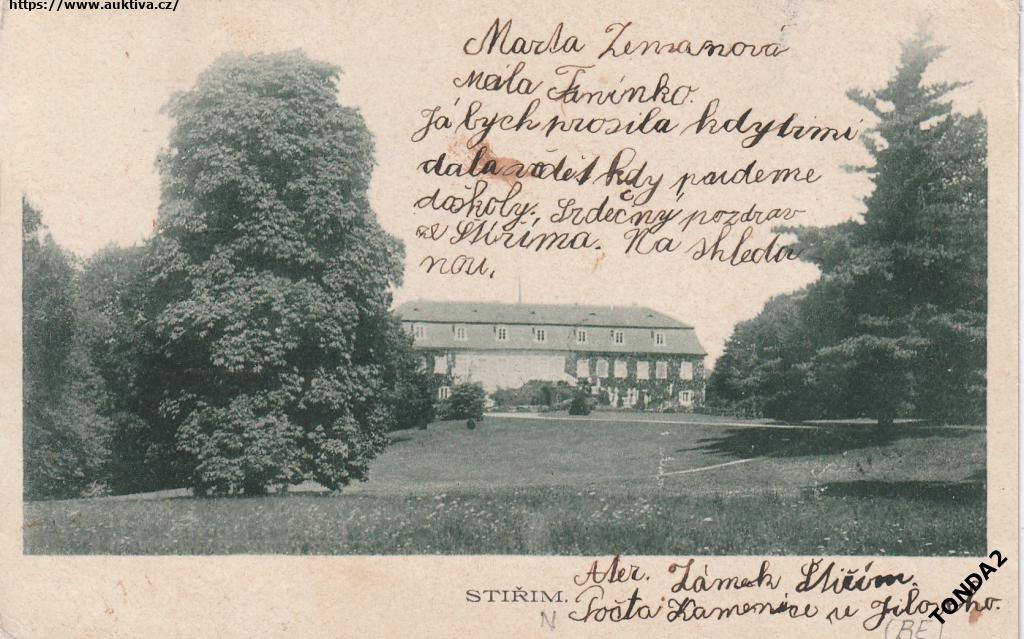 https://www.auktiva.cz/
Marta Zemanová
Milá Fanínko.
Já bych prosila kdybi mi
dala vědět kdy pudeme
doškoly, Srdečný pozdrav
ze Štiříma. Na shleda
nou.
STIŘIM.
Ater. Zámek Štiřím.
Počta Kamenice u Jilového.
N
(BE)
TONDA2